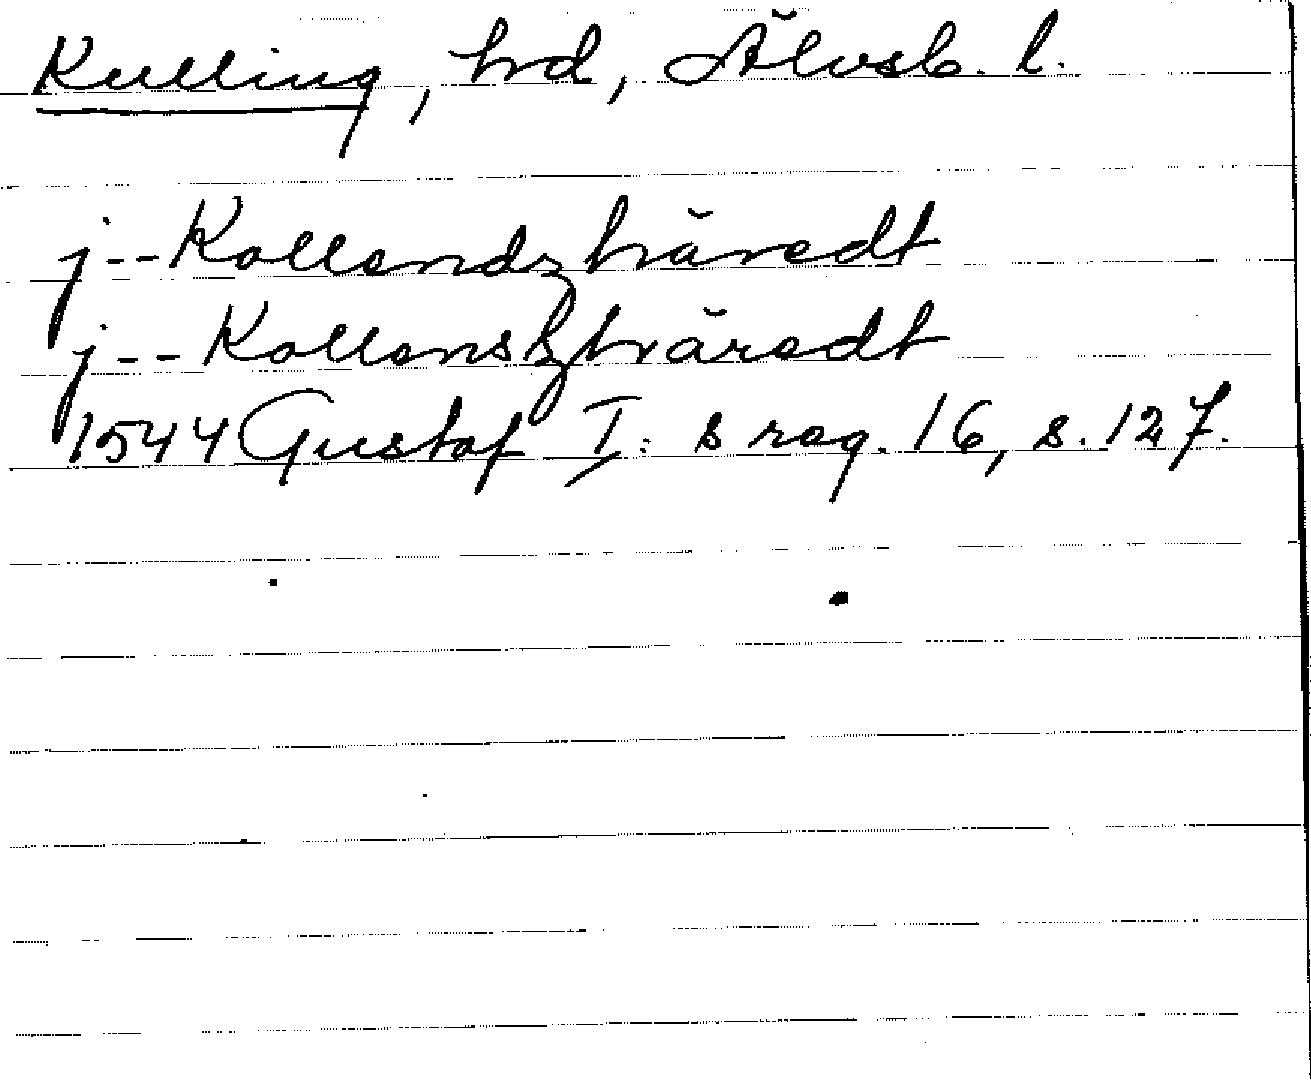 Kulling, hrd, Älvsb. l.
j--Kollendzhäredt
j--Kollenskhäredt
1544 Gustaf I:s reg. 16, s. 127.